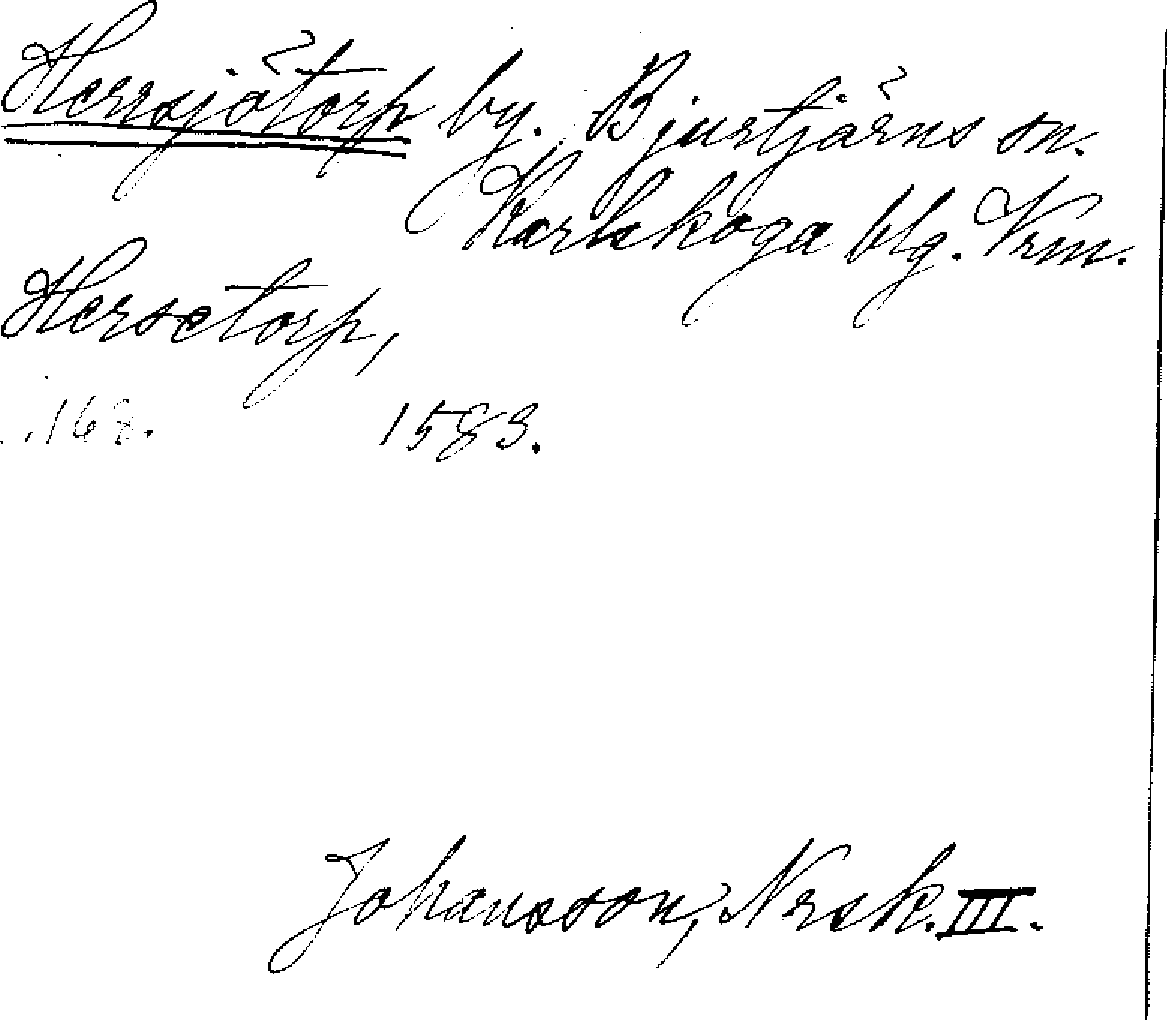 Herrsjötorp by. Bjurtjärns sn.
Karlskoga blg. Vrm.
Hersetorp,
168. 1583.
Johansson, Nrsk. III.